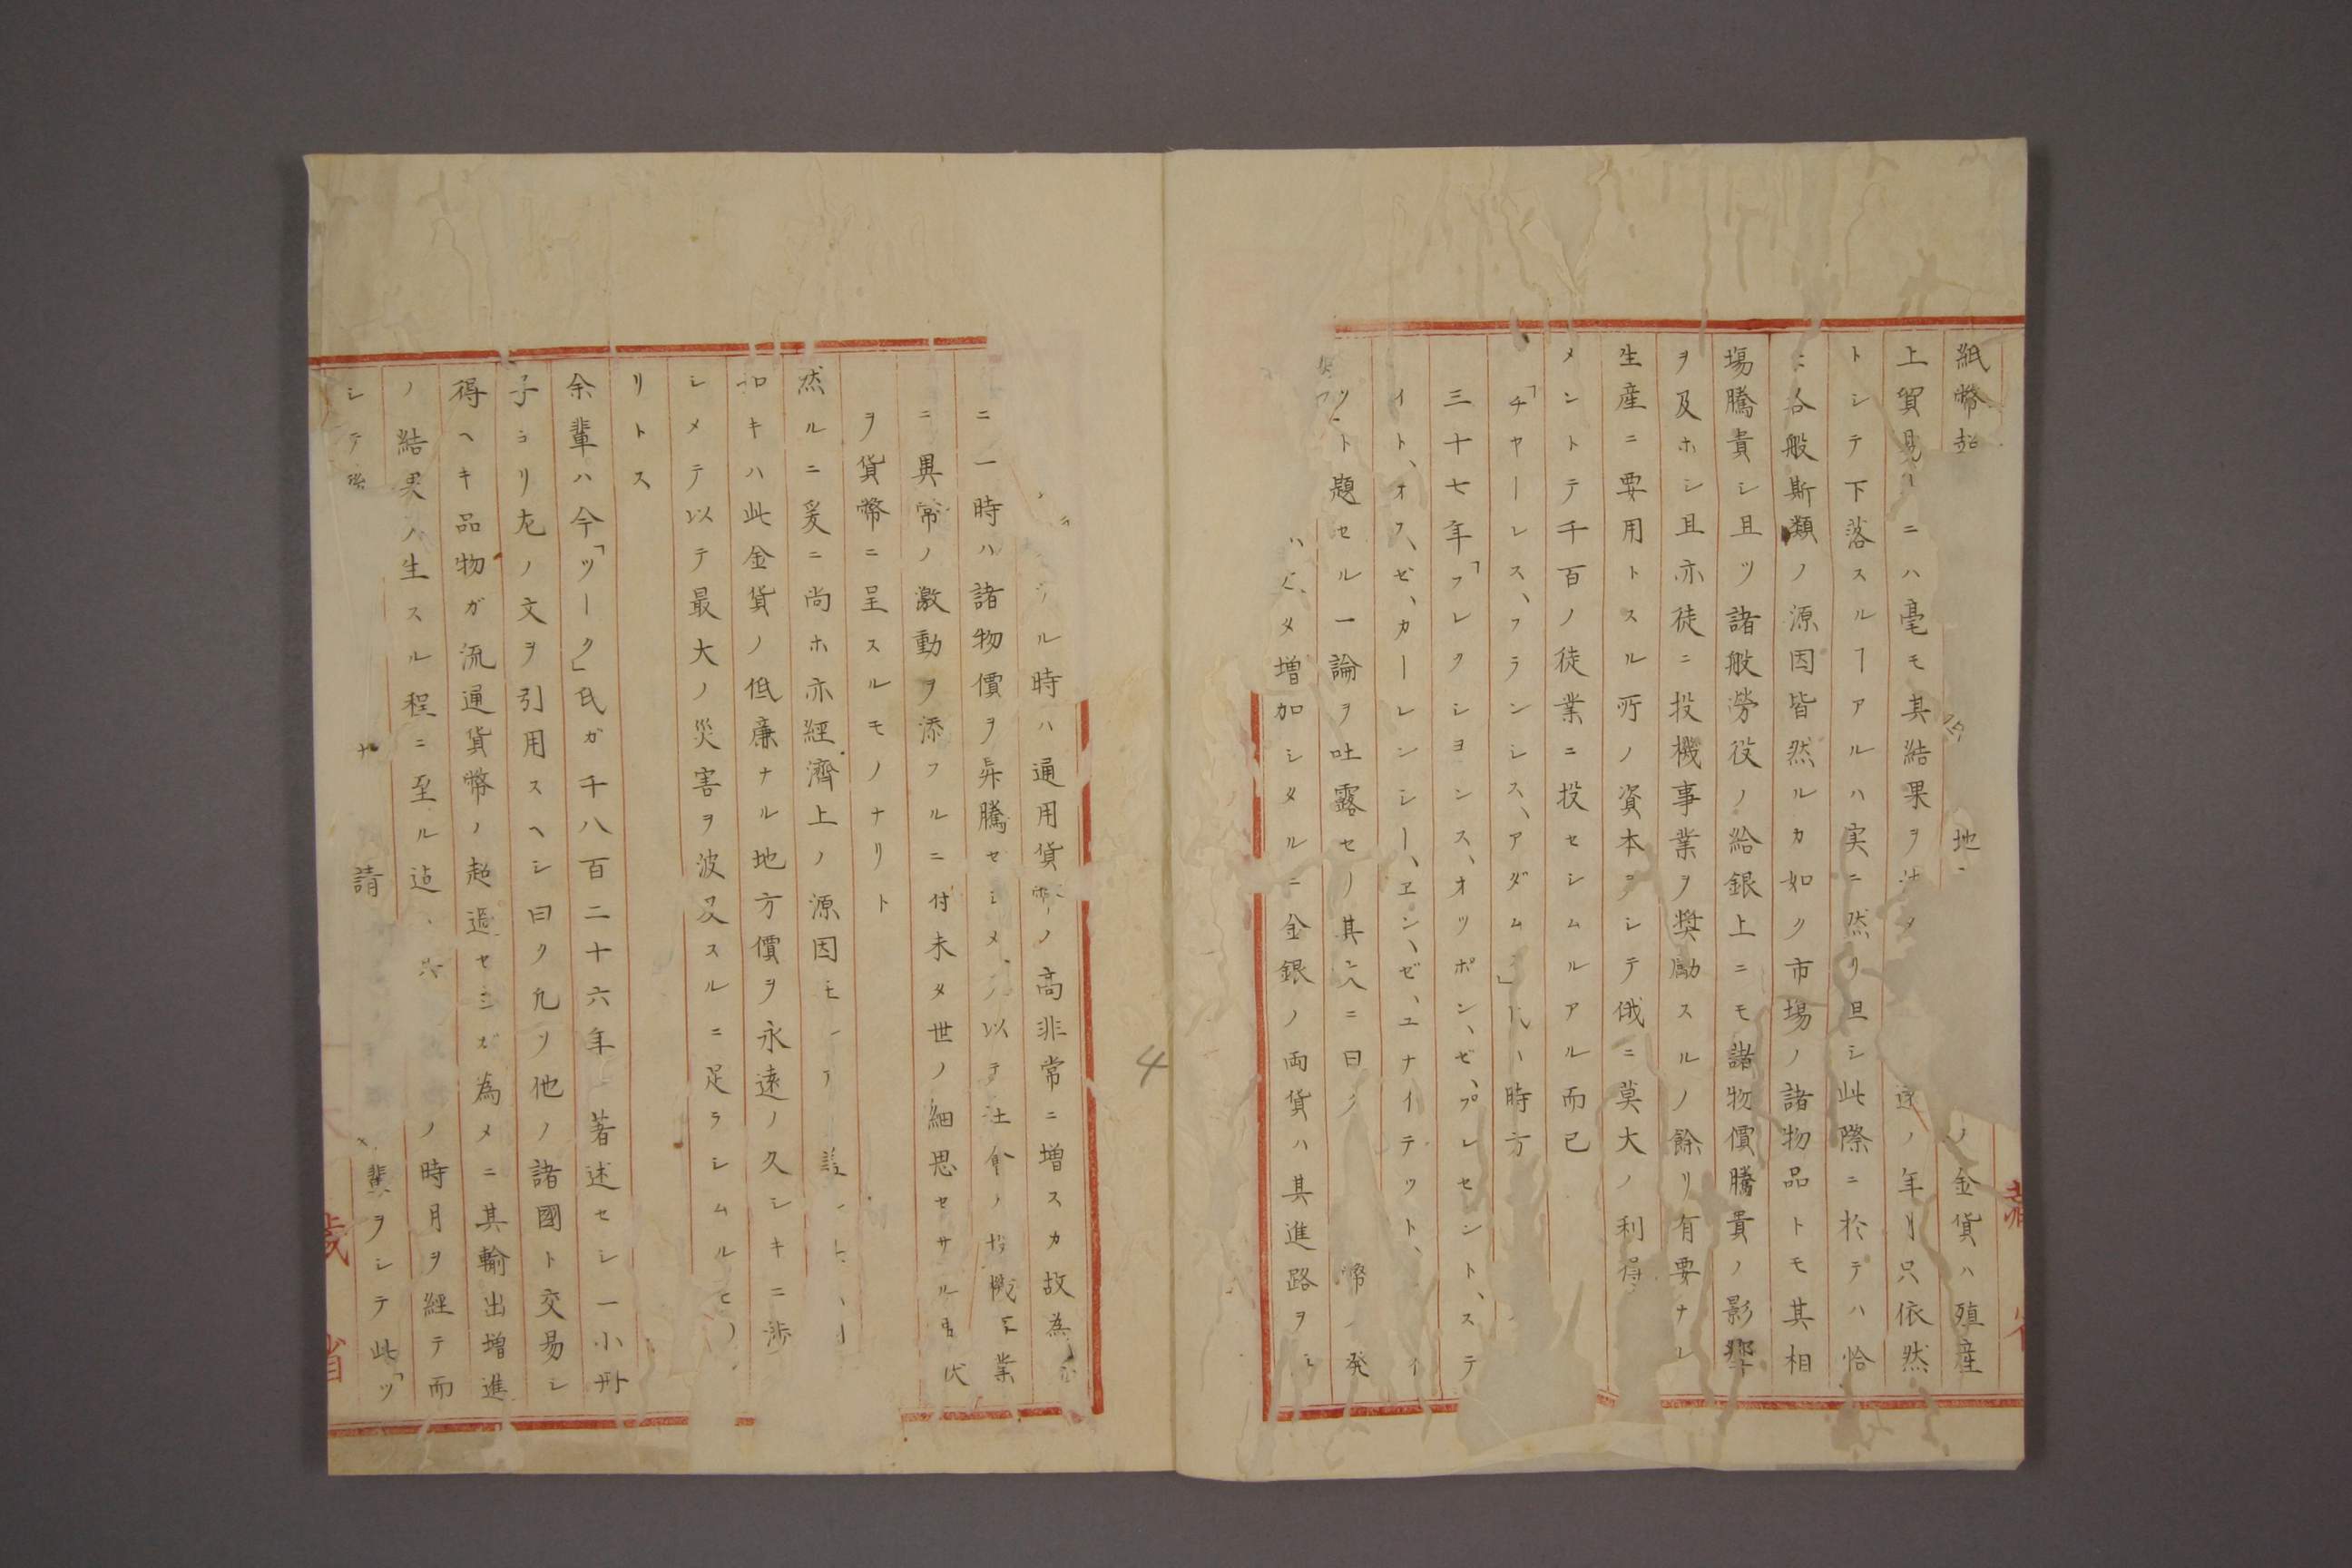 紙幣 地 ノ金貨ハ殖産
上貿易上ニハ毫モ其結果ヲ ノ年月只依然
トシテ下落スルヿアルハ実ニ然リ且シ此際ニ於テハ恰
モ各般斯類ノ源因皆然ルカ如ク市場ノ諸物品トモ其相
場騰貴シ且ツ諸般労役ノ給銀上ニモ諸物價騰貴ノ影響
ヲ及ホシ且亦徒ニ投機事業ヲ奨励スルノ餘リ有要ナル
生産ニ要用トスル所ノ資本ヲシテ俄ニ莫大ノ利得
メントテ千百ノ徒業ニ投セシムルアル而已
「チヤーレス、フランシス、アダムス」氏ハ時方
三十七年「フレクシヨンス、オツポン、ゼ、プレセント、ステ
イト、オフ、ゼ、カーレンシー、ヱン、ゼ、ユナイテツト、
ツ」ト題セル一論ヲ吐露セリ其文ニ曰ク 幣 発
増加シタルニ金銀ノ両貨ハ其進路ヲ
ル時ハ通用貨幣ノ高非常ニ増スカ故為
ニ一時ハ諸物價ヲ昇騰セシメ 以テ社會ノ投機事業
ニ異常ノ激動ヲ添フルニ付未タ世ノ細思セサル 伏
ヲ貨幣ニ呈スルモノナリト
然ルニ爰ニ尚ホ亦經濟上ノ源因モ
如キハ此金貨ノ低廉ナル地方價ヲ永遠ノ久シキニ渉
シメテ以テ最大ノ災害ヲ波及スルニ足ラシムル
リトス
余輩ハ今「ツーク」氏ガ千八百二十六年 著述セシ一小冊
子ヨリ左ノ文ヲ引用スヘシ曰ク凡ソ他ノ諸國ト交易シ
得ヘキ品物ガ流通貨幣ノ超過セシガ為メニ其輸出増進
ノ結果ノ生スル程ニ至ル迄 ノ時月ヲ経テ而
シテ 請 輩ヲシテ此「ツ
蔵省
4